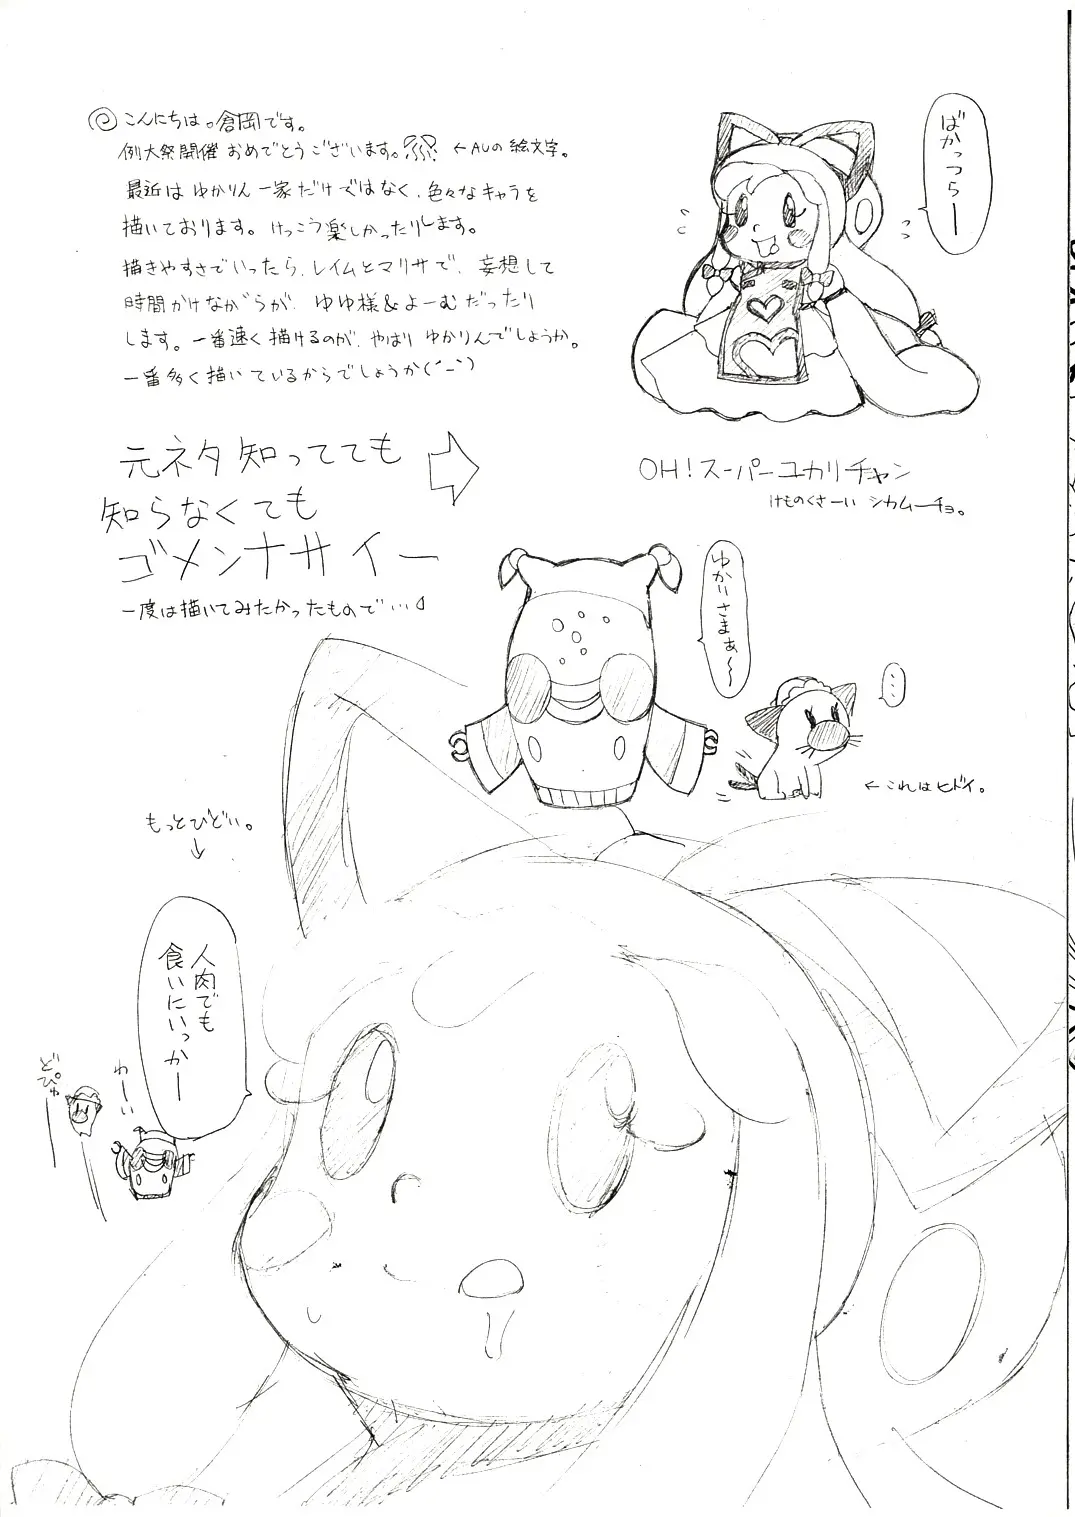 こんにちは。倉岡です。
例大祭開催おめでとうございます。 ←AUの絵文字。
最近はゆかりん一家だけではなく、色々なキャラを
描いております。けっこう楽しかったりします。
描きやすさでいったら、レイムとマリサで、妄想して
時間かけながらが、ゆゆ様&よーむだったり
します。一番速く描けるのが、やはりゆかりんでしょうか。
一番多く描いているからでしょうか(´-`)
ばかっつらー
元ネタ知ってても
知らなくても
ゴメンナサイー
一度は描いてみたかったもので…
OH!スーパーユカリチャン
けものくさーい シカムーチョ。
ゆかりさまぁ〜
…
←これはヒドイ。
もっとひどい。
↓
人肉でも
食いにいっかー
わーい
どぴゅー